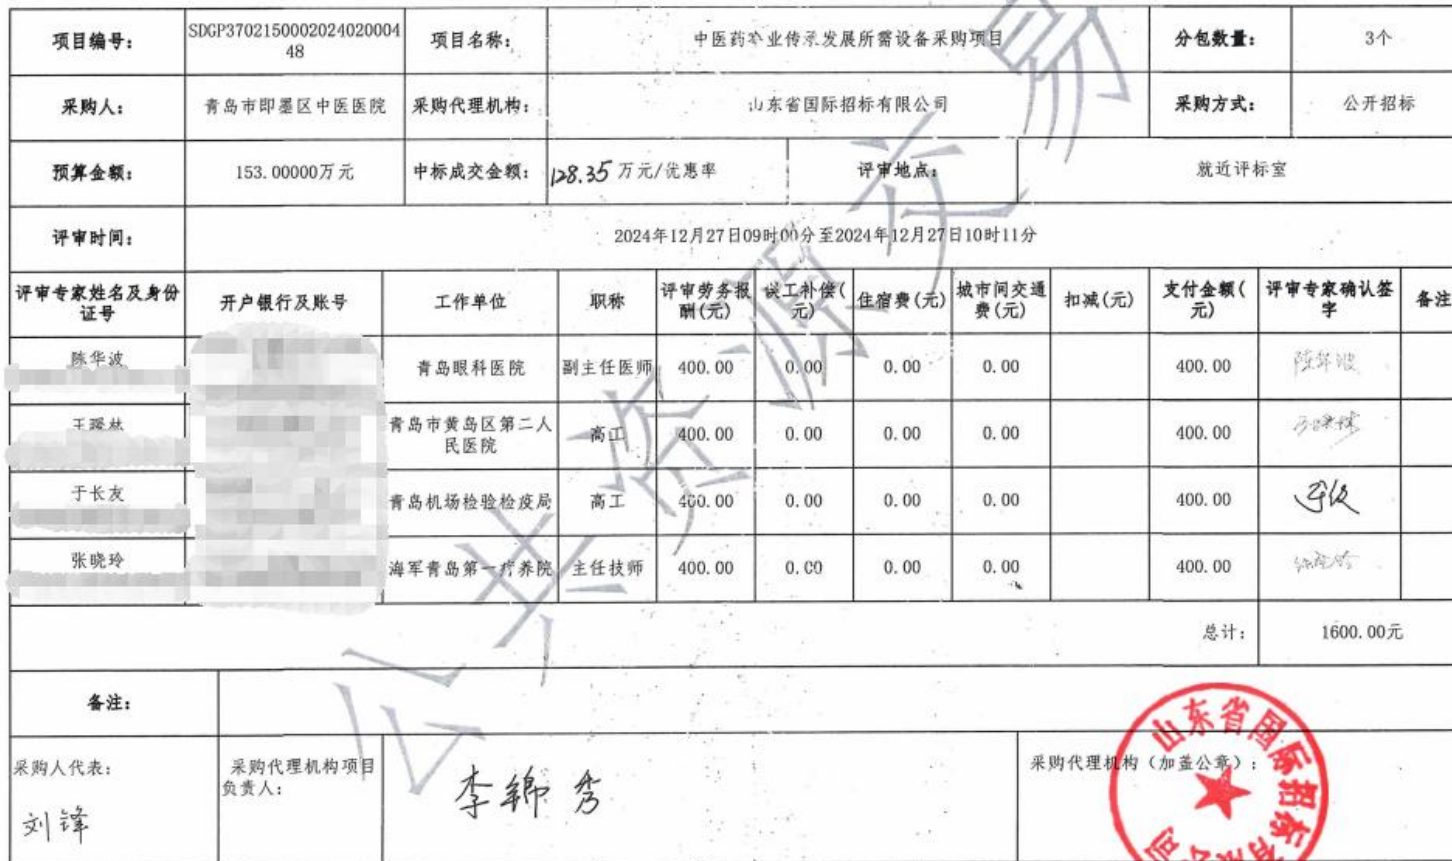 项目编号：
SDGP37021500020240200​04
48
项目名称：
中医药事业传承发展所需设备采购项目
分包数量：
3个
采购人：
青岛市即墨区中医医院
采购代理机构：
山东省国际招标有限公司
采购方式：
公开招标
预算金额：
153.00000万元
中标成交金额：
128.35 万元/优惠率
评审地点：
就近评标室
评审时间：
2024年12月27日09时00分至2024年12月27日10时11分
评审专家姓名及身份
证号
开户银行及账号
工作单位
职称
评审劳务报
酬(元)
误工补偿(
元)
住宿费(元)
城市间交通
费(元)
扣减(元)
支付金额(
元)
评审专家确认签
字
备注
陈华波
青岛眼科医院
副主任医师
400.00
0.00
0.00
0.00
400.00
陈华波
青岛市黄岛区第二人
民医院
高工
400.00
0.00
0.00
0.00
400.00
于长友
青岛机场检验检疫局
高工
400.00
0.00
0.00
0.00
400.00
张晓玲
海军青岛第一疗养院
主任技师
400.00
0.00
0.00
0.00
400.00
总计：
1600.00元
备注：
采购人代表：
刘锋
采购代理机构项目
负责人：
李锦秀
采购代理机构（加盖公章）：
山东省国际招标有限公司
公共资源交易